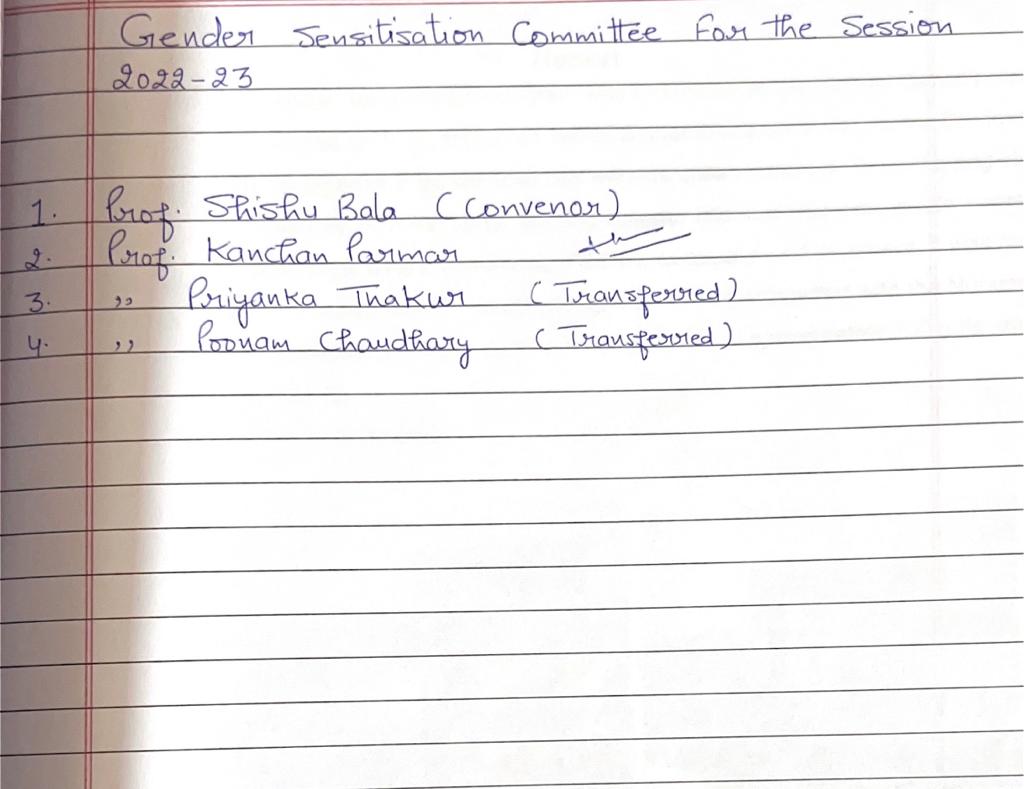 Gender Sensitisation Committee For the Session
2022-23
1. Prof. Shishu Bala (Convenor)
2. Prof. Kanchan Parmar
3. ,, Priyanka Thakur (Transferred)
4. ,, Poonam Chaudhary (Transferred)